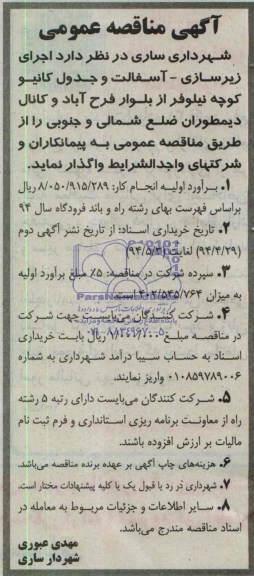 آگهی مناقصه عمومی
شهرداری ساری در نظر دارد اجرای
زیرسازی - آسفالت و جدول کانیو
کوچه نیلوفر از بلوار فرح آباد و کانال
دیمطوران ضلع شمالی و جنوبی را از
طریق مناقصه عمومی به پیمانکاران و
شرکتهای واجدالشرایط واگذار نماید.
۱. برآورد اولیه انجام کار: ۸/۰۵۰/۹۱۵/۲۸۹ ریال
براساس فهرست بهای رشته راه و باند فرودگاه سال ۹۴
۲. تاریخ خریداری اسناد: از تاریخ نشر آگهی دوم
(۹۴/۴/۲۹) لغایت
۳. سپرده شرکت در مناقصه: ۵٪ مبلغ برآورد اولیه
به میزان ۴۰۲/۵۴۵/۷۶۴
۴. شرکت کنندگان می‌بایست جهت شرکت
در مناقصه مبلغ ریال بابت خریداری
اسناد به حساب سیبا درآمد شهرداری به شماره
۰۱۰۸۵۹۷۸۹۰۰۶ واریز نمایند.
۵. شرکت کنندگان می‌بایست دارای رتبه ۵ رشته
راه از معاونت برنامه ریزی استانداری و فرم ثبت نام
مالیات بر ارزش افزوده باشند.
۶. هزینه‌های چاپ آگهی بر عهده برنده مناقصه می‌باشد.
۷. شهرداری در رد یا قبول یک یا کلیه پیشنهادات مختار است.
۸. سایر اطلاعات و جزئیات مربوط به معامله در
اسناد مناقصه مندرج می‌باشد.
مهدی عبوری
شهردار ساری